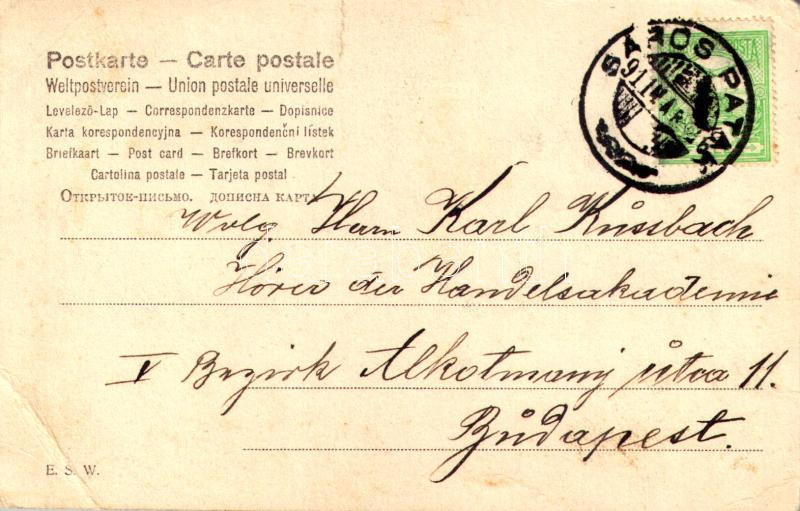 Postkarte — Carte postale
Weltpostverein — Union postale universelle
Levelező-Lap — Correspondenzkarte — Dopisnice
Karta korespondencyjna — Korespondenční lístek
Briefkaart — Post card — Brefkort — Brevkort
Cartolina postale — Tarjeta postal
Открытое-письмо. дописна карта
SÁROSPATAK
Wolg. Herrn Karl Kussbach
Hörer der Handelsakademie
V Bezirk Alkotmány utca 11.
Budapest.
E. S. W.